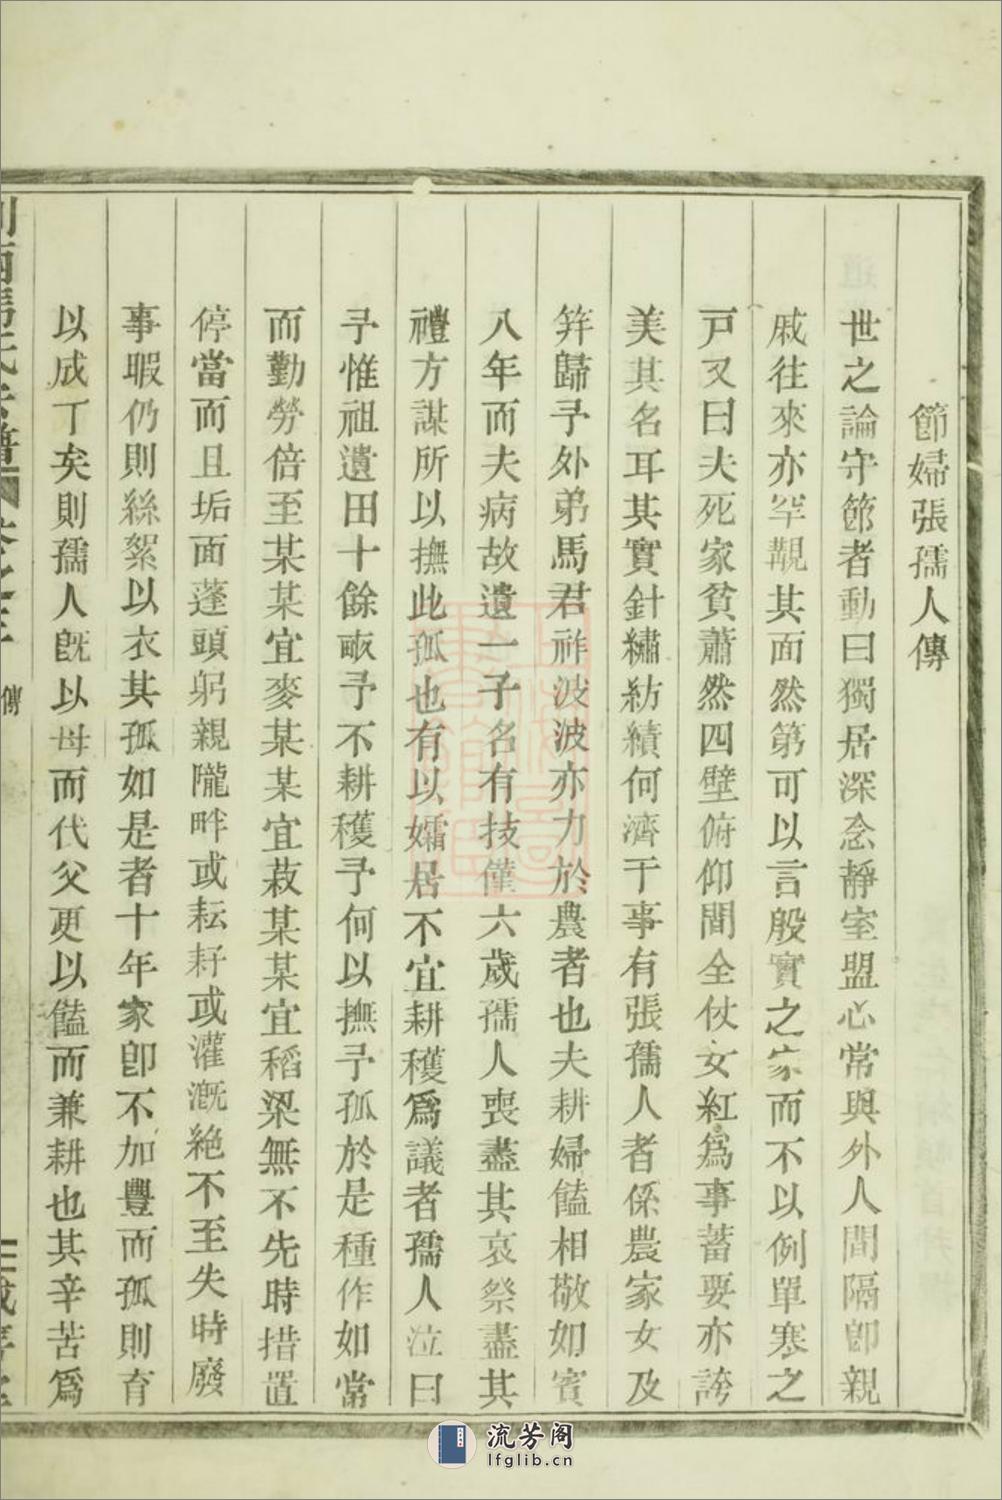 節婦張孺人傳
世之論守節者動曰獨居深念靜室盟心常與外人間隔卽親
戚往來亦罕覯其面然第可以言殷實之家而不以例單寒之
戸又曰夫死家貧蕭然四壁俯仰間全仗女紅爲事蓄要亦誇
美其名耳其實針繡紡績何濟于事有張孺人者係農家女及
笄歸予外弟馬君祚波波亦力於農者也夫耕婦饁相敬如賓
八年而夫病故遺一子名有技僅六歲孺人喪盡其哀祭盡其
禮方謀所以撫此孤也有以孀居不宜耕穫爲議者孺人泣曰
予惟祖遺田十餘畝予不耕穫予何以撫予孤於是種作如當
而勤勞倍至某某宜麥某某宜菽某某宜稻梁無不先時措置
停當而且垢面蓬頭躬親隴畔或耘耔或灌漑絶不至失時廢
事暇仍則絲絮以衣其孤如是者十年家卽不加豐而孤則育
以成丁矣則孺人旣以母而代父更以饁而兼耕也其辛苦爲
傳
流芳阁
lfglib.cn